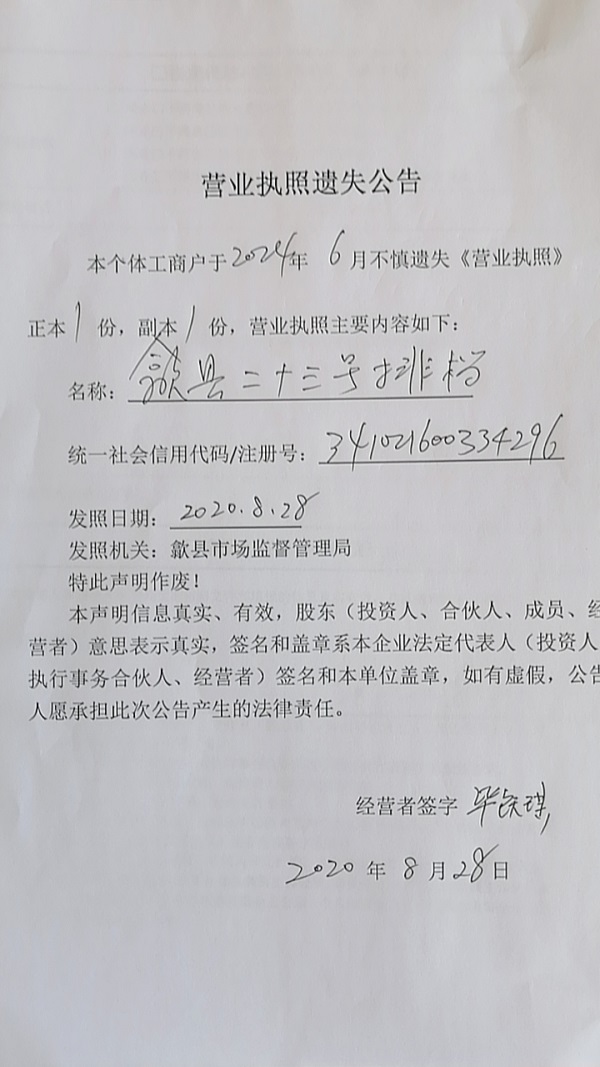 营业执照遗失公告
本个体工商户于2024年 6月不慎遗失《营业执照》
正本1份，副本1份，营业执照主要内容如下：
名称：歙县二十三号排档
统一社会信用代码/注册号：341021600334296
发照日期：2020.8.28
发照机关：歙县市场监督管理局
特此声明作废！
本声明信息真实、有效，股东（投资人、合伙人、成员、经
营者）意思表示真实，签名和盖章系本企业法定代表人（投资人
执行事务合伙人、经营者）签名和本单位盖章，如有虚假，公告
人愿承担此次公告产生的法律责任。
经营者签字
2020年8月28日